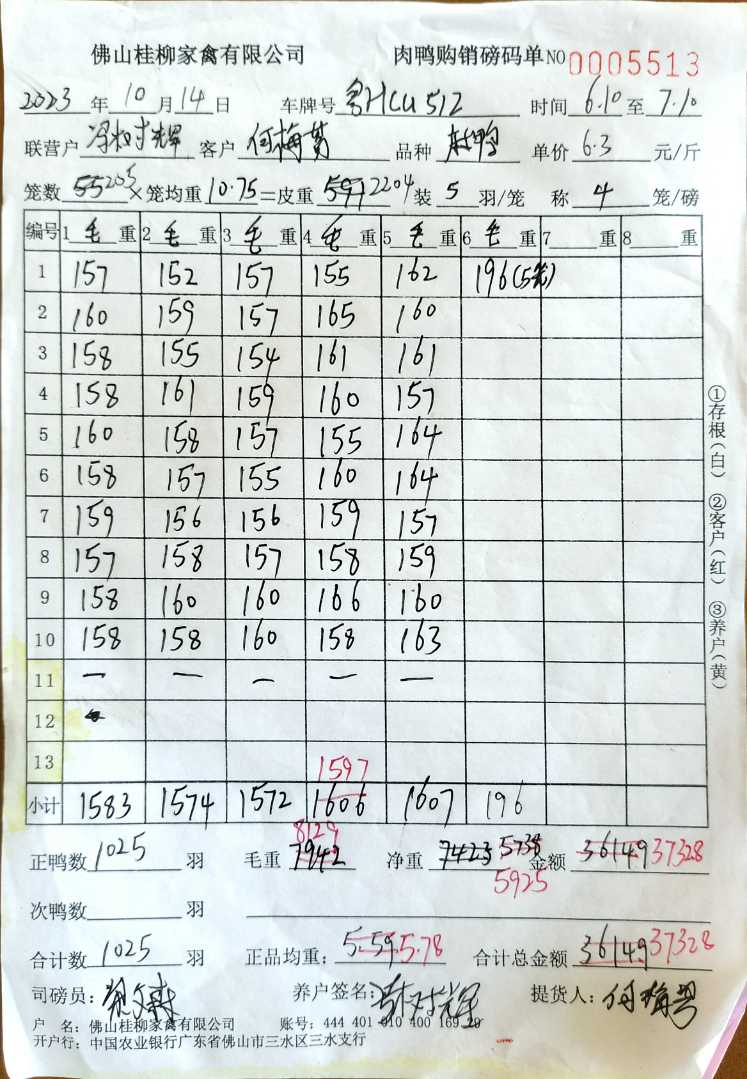 佛山桂柳家禽有限公司 肉鸭购销磅码单 NO 0005513
2023 年 10 月 14 日 车牌号 512 时间 6.10 至 7.10
联营户 客户 何梅 品种 鸭 单价 6.3 元/斤
笼数 55 205 × 笼均重 10.75 = 皮重 591 2204 装 5 羽/笼 称 4 笼/磅
编号 1 毛 重 2 毛 重 3 毛 重 4 毛 重 5 毛 重 6 毛 重 7 重 8 重
1 157 152 157 155 162 196(5笼)
2 160 159 157 165 160
3 158 155 154 161 161
4 158 161 159 160 157
5 160 158 157 155 164
6 158 157 155 160 164
7 159 156 156 159 157
8 157 158 157 158 159
9 158 160 160 166 160
10 158 158 160 158 163
11 — — — — —
12
13 1597
小计 1583 1574 1572 1606 1607 196
8129
正鸭数 1025 羽 毛重 7942 净重 7423 5738 金额 36149 37328
5925
次鸭数 羽
合计数 1025 羽 正品均重: 5.59 5.78 合计总金额 36149 37328
司磅员: 养户签名: 提货人: 何梅
户 名: 佛山桂柳家禽有限公司 账号: 444 401 010 400 169 29
开户行: 中国农业银行广东省佛山市三水区三水支行
①存根(白) ②客户(红) ③养户(黄)